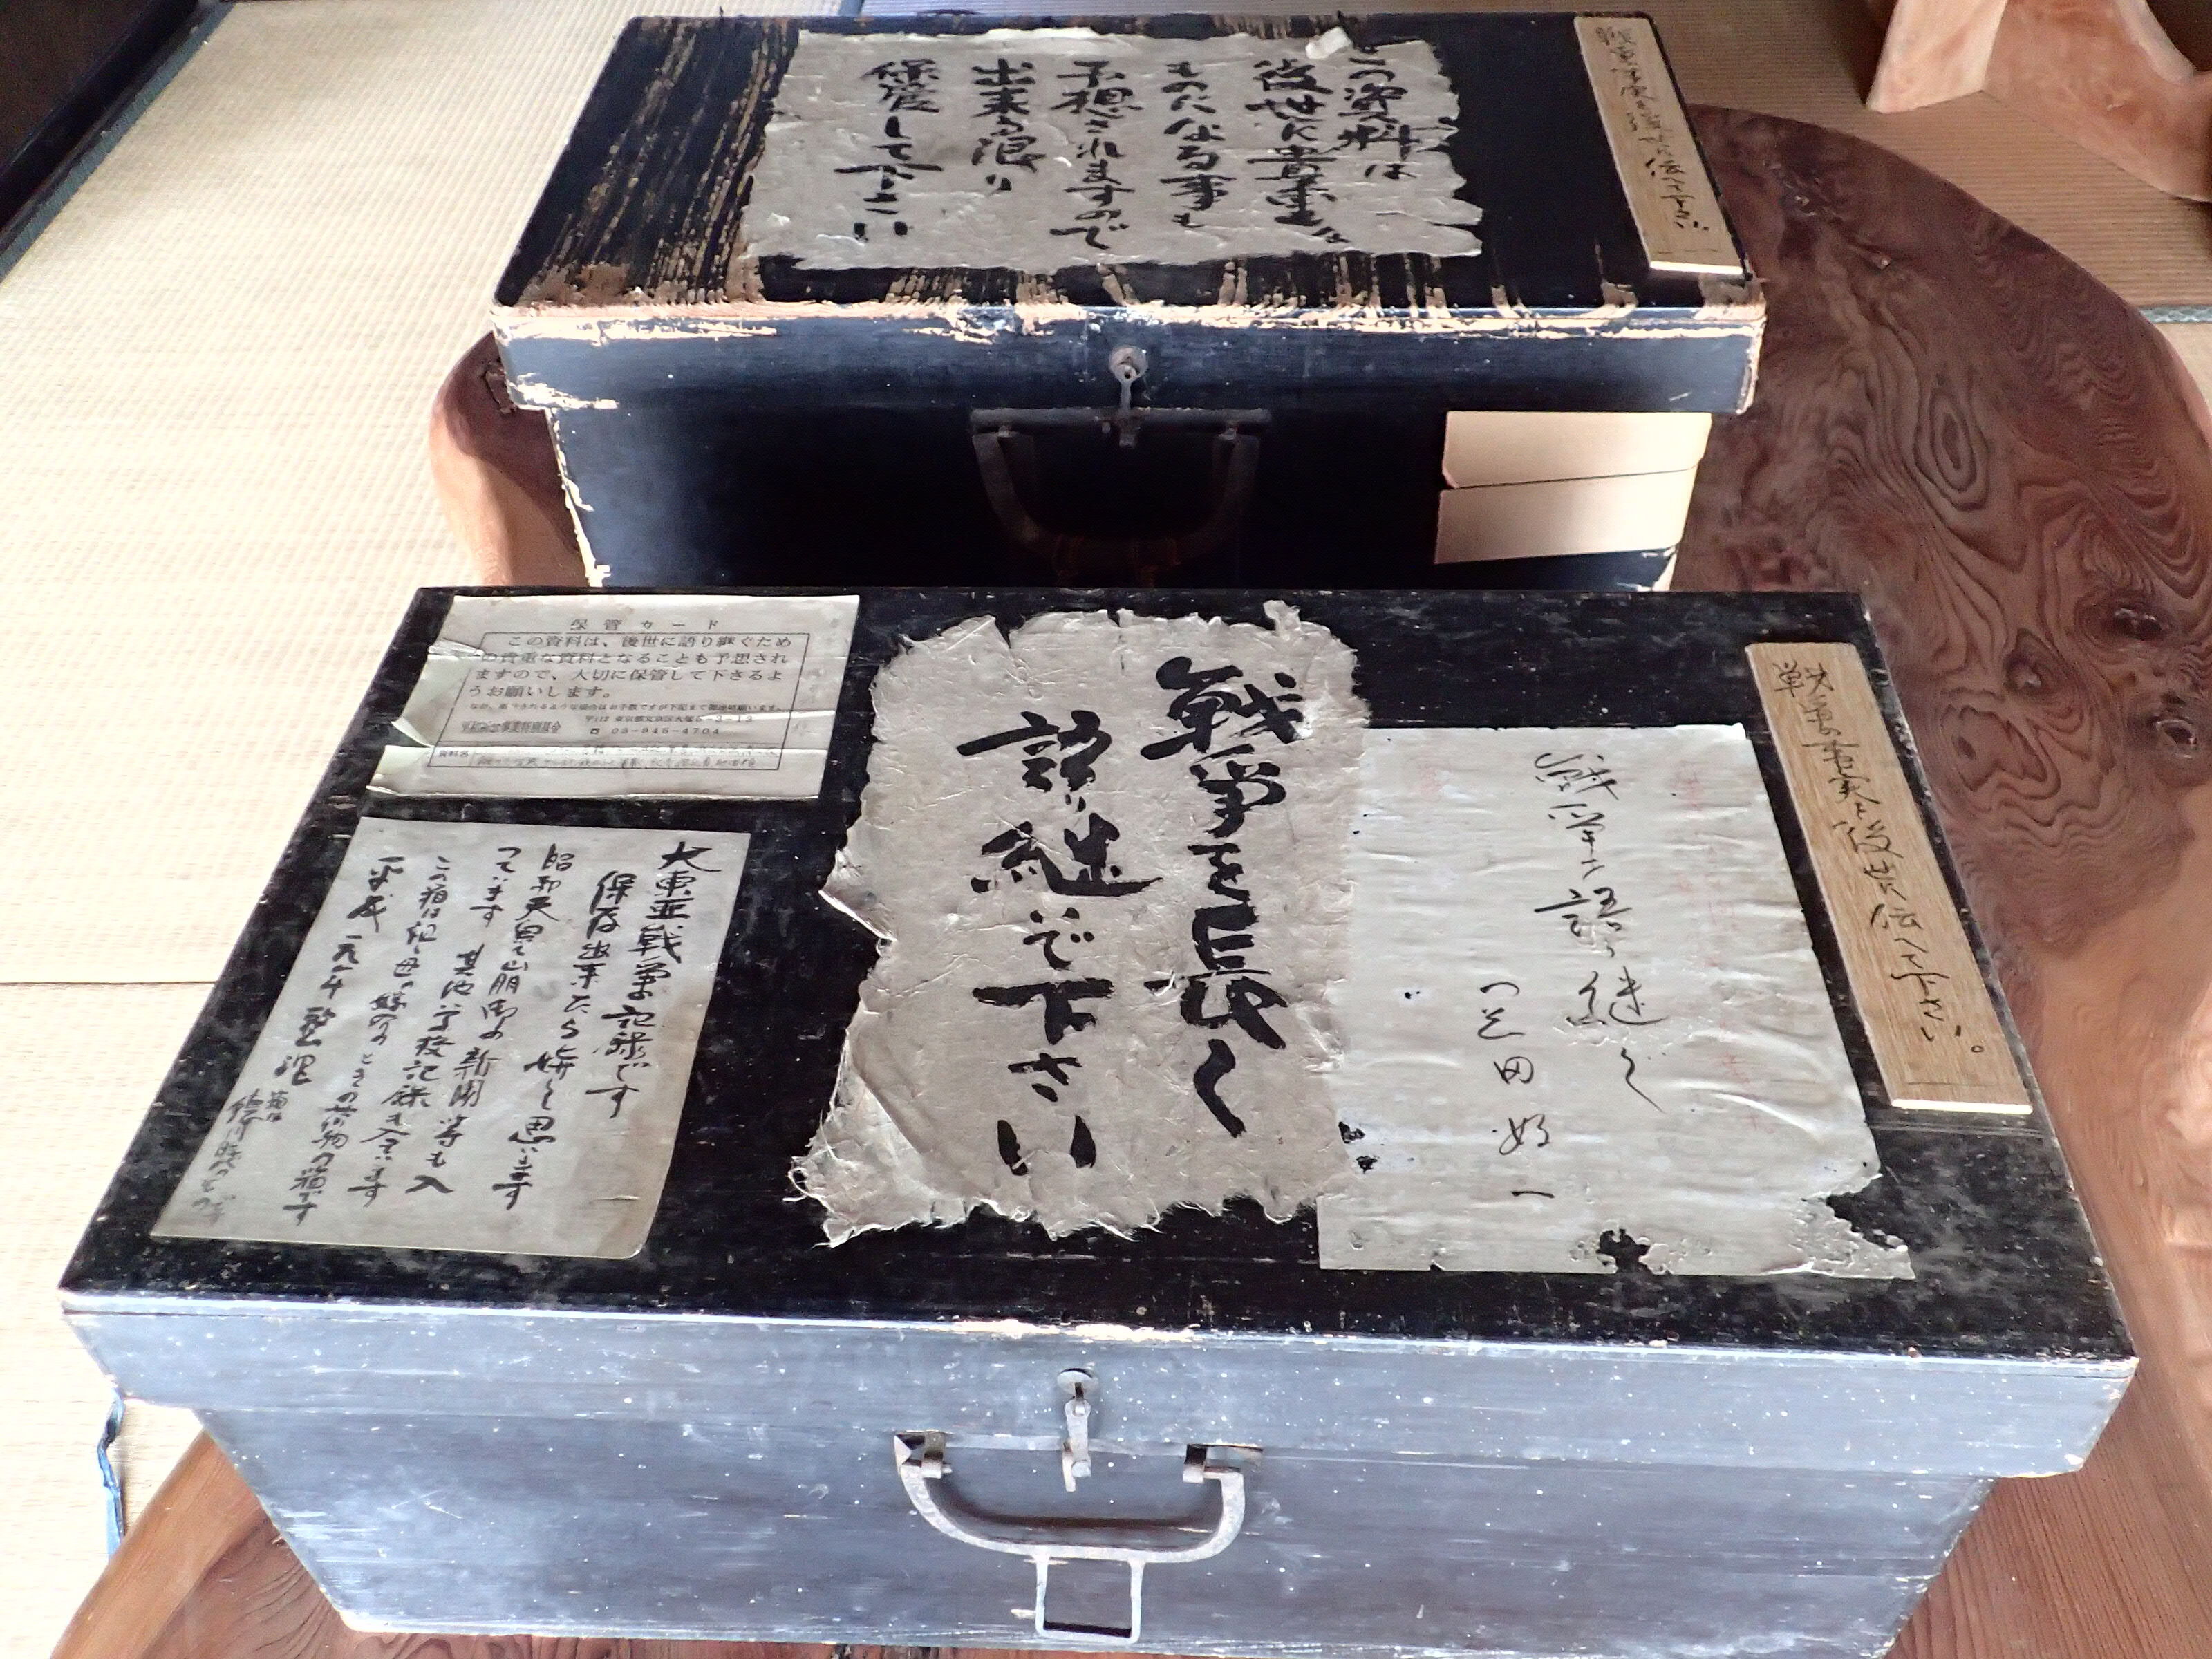 この資料は
後世に貴重な
ものになる事も
予想されますので
出来る限り
保管して下さい
戦争の事実を後世に伝へて下さい。
保管カード
この資料は、後世に語り継ぐため
の貴重な資料となることも予想され
ますので、大切に保管して下さるよ
うお願いします。
平和祈念事業特別基金
☎ 03-945-4704
資料名
戦争を長く
語り継いで下さい
語り継ぐ
田
一
戦争の事実を後世に伝へて下さい。
大東亜戦争の記録です
保存出来たら嬉しく思います
昭和天皇の崩御の新聞等も入
っています 其他学校記録も入ています
この箱は祖母の嫁入のときの荷物の箱です
平成 整理